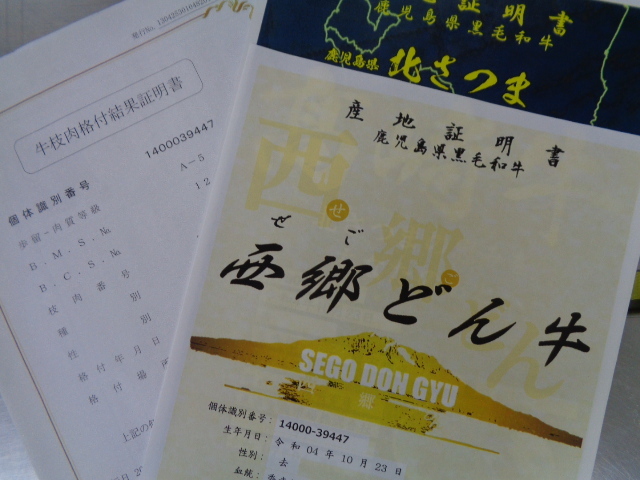 牛枝肉格付結果証明書
個体識別番号 1400039447
歩留－肉質等級 A－5
B．M．S．№ 12
B．C．S．№
枝肉番号
種別
性別
格付年月日
格付場所
上記の
証明書
鹿児島県黒毛和牛
鹿児島県 北さつま
産地証明書
鹿児島県黒毛和牛
せご
西郷どん牛
SEGO DON GYU
西郷
個体識別番号： 14000-39447
生年月日： 令和04年10月23日
性別： 去
血統：